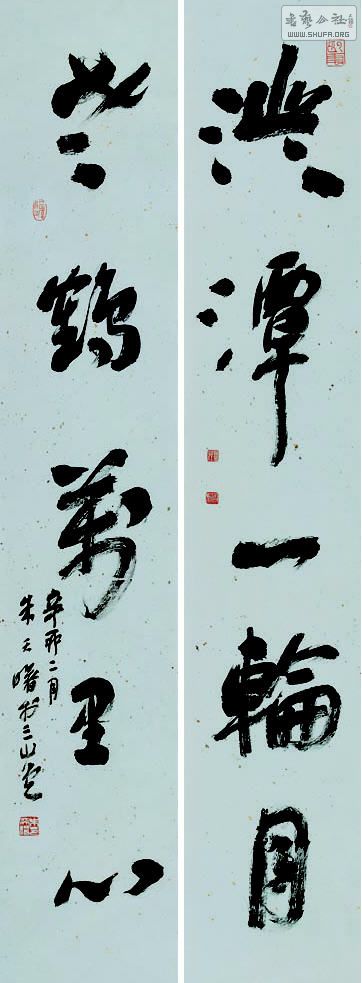 書藝公社
WWW.SHUFA.ORG
澄潭一輪月
老鶴萬里心
辛卯二月
朱天曙於三山堂